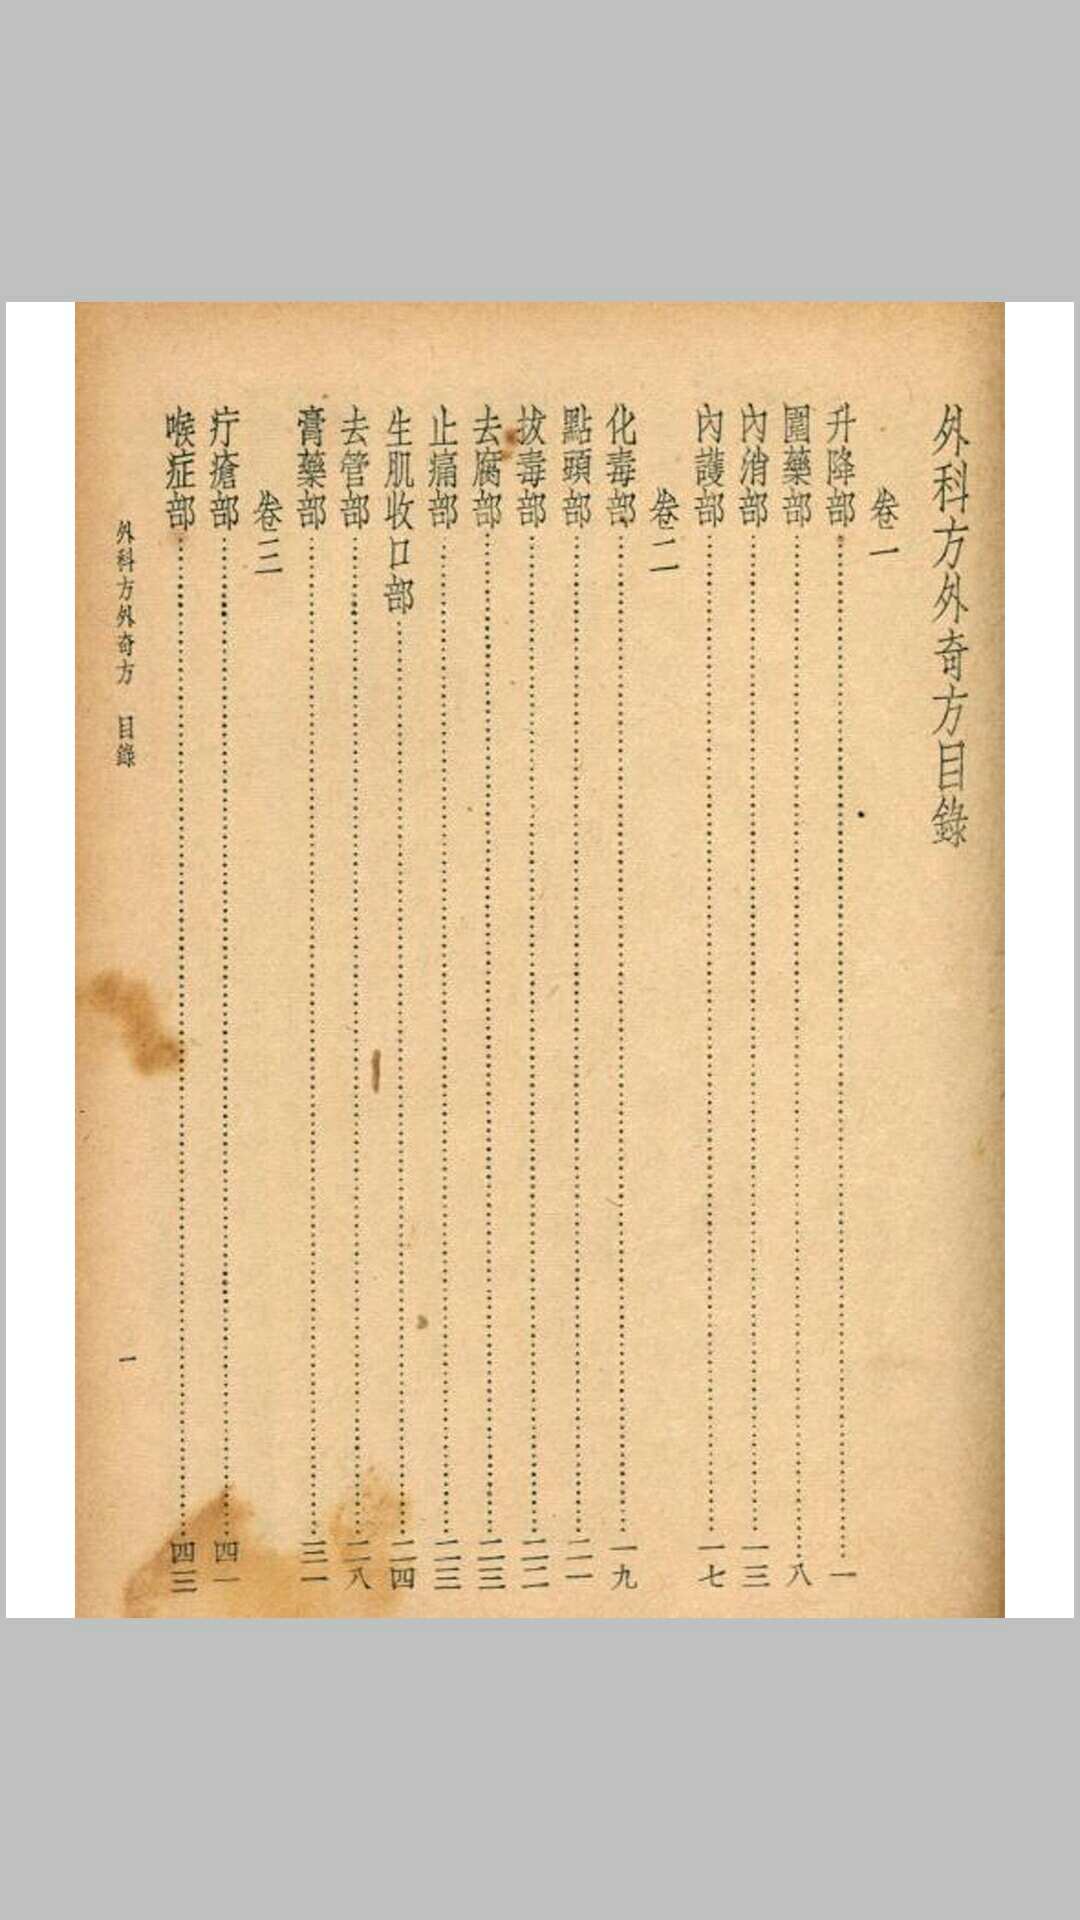 外科方外奇方目錄
卷一
升降部……一
圍藥部……八
內消部……一三
內護部……一七
卷二
化毒部……一九
點頭部……二一
拔毒部……二二
去腐部……二三
止痛部……二三
生肌收口部……二四
去管部……二八
膏藥部……三一
卷三
疔瘡部……四一
喉症部……四三
外科方外奇方 目錄
一